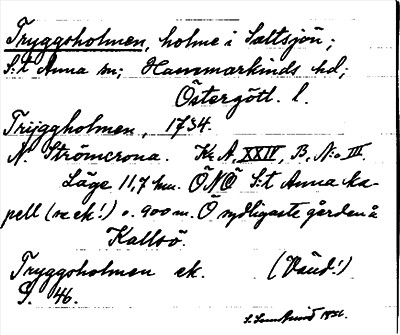 Tryggsholmen, holme i Saltsjön;
S:t Anna sn; Hammarkinds hd;
Östergötl. l.
Tryggholmen, 1734.
N. Strömcrona. Kr. A. XXIV, B. N:o III.
Läge 11,7 km. ÖNÖ S:t Anna ka-
pell (se ek!) o. 900 m. Ö sydligaste gården å
Kallsö.
Tryggsholmen ek. (Vänd!)
S. 46.